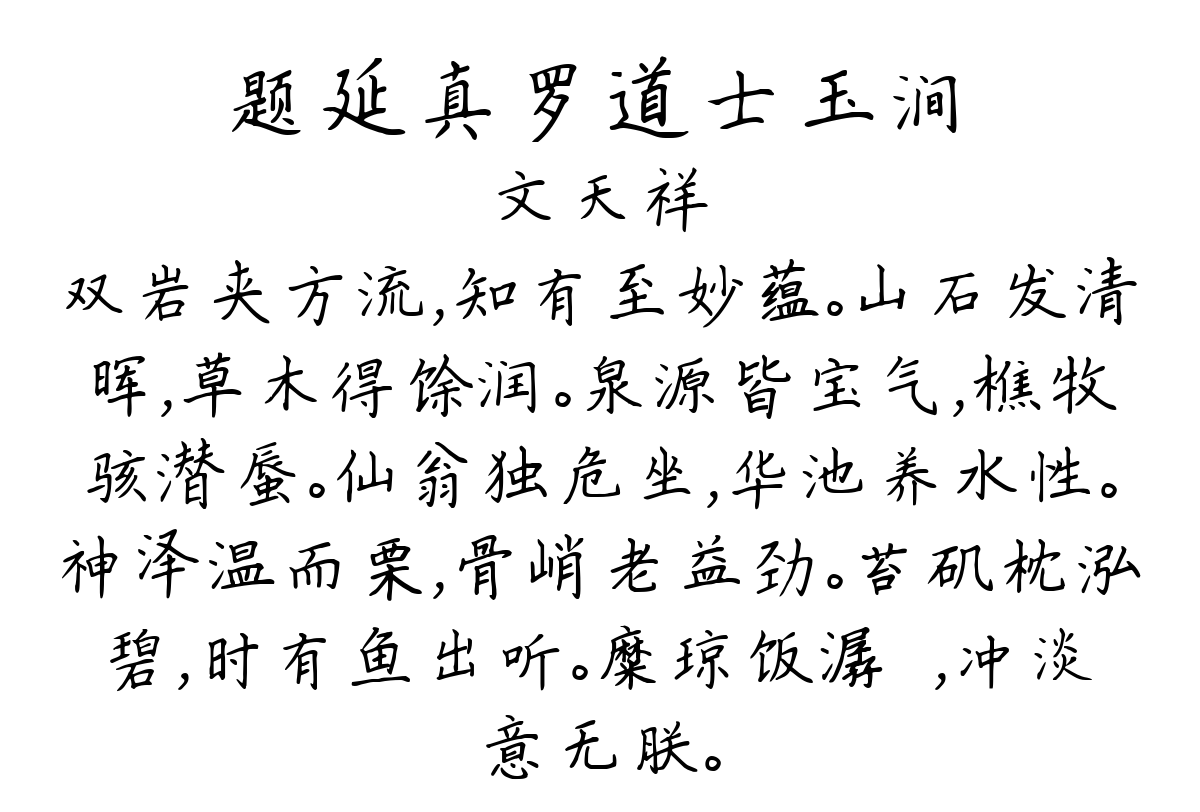 题延真罗道士玉涧
文天祥
双岩夹方流,知有至妙蕴。山石发清
晖,草木得馀润。泉源皆宝气,樵牧
骇潜蜃。仙翁独危坐,华池养水性。
神泽温而栗,骨峭老益劲。苔矶枕泓
碧,时有鱼出听。糜琼饭潺 ,冲淡
意无朕。